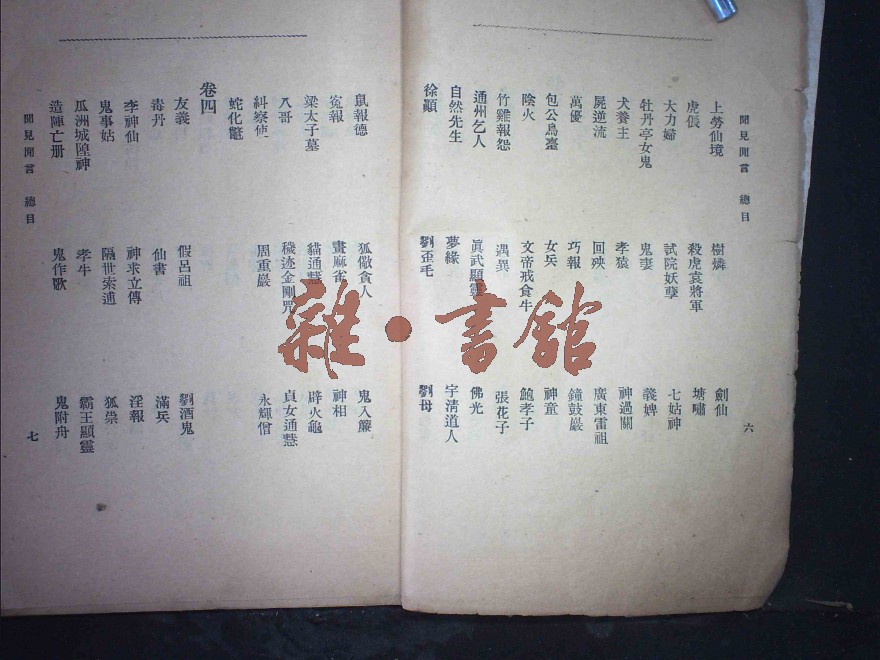 聞見閒言　總目　六
上勞仙境　樹燐　劍仙
虎倀　殺虎袁將軍　塘嘯
大力婦　試院妖孽　七姑神
牡丹亭女鬼　鬼妻　義婢
犬養主　孝猿　神過關
屍逆流　回殃　廣東雷祖
萬優　巧報　鐘鼓巖
包公鳥臺　女兵　神童
陰火　文帝戒食牛　鮑孝子
竹雞報怨　遇異　張花子
通州乞人　眞武顯靈　佛光
自然先生　夢緣　宇淸道人
徐顚　劉歪毛　劉母
鼠報德　狐儆貪人　鬼入簾
冤報　畫麻雀　神相
梁太子墓　貓通慧　辟火龜
八哥　穢迹金剛咒　貞女通慧
糾察使　周重巖　永輝僧
蛇化鼈
卷四
友義　假呂祖　劉酒鬼
毒丹　仙書　滿兵
李神仙　神求立傳　淫報
鬼事姑　隔世索逋　狐祟
瓜洲城隍神　孝牛　霸王顯靈
造陣亡册　鬼作歌　鬼附舟
聞見閒言　總目　七
雜·書館